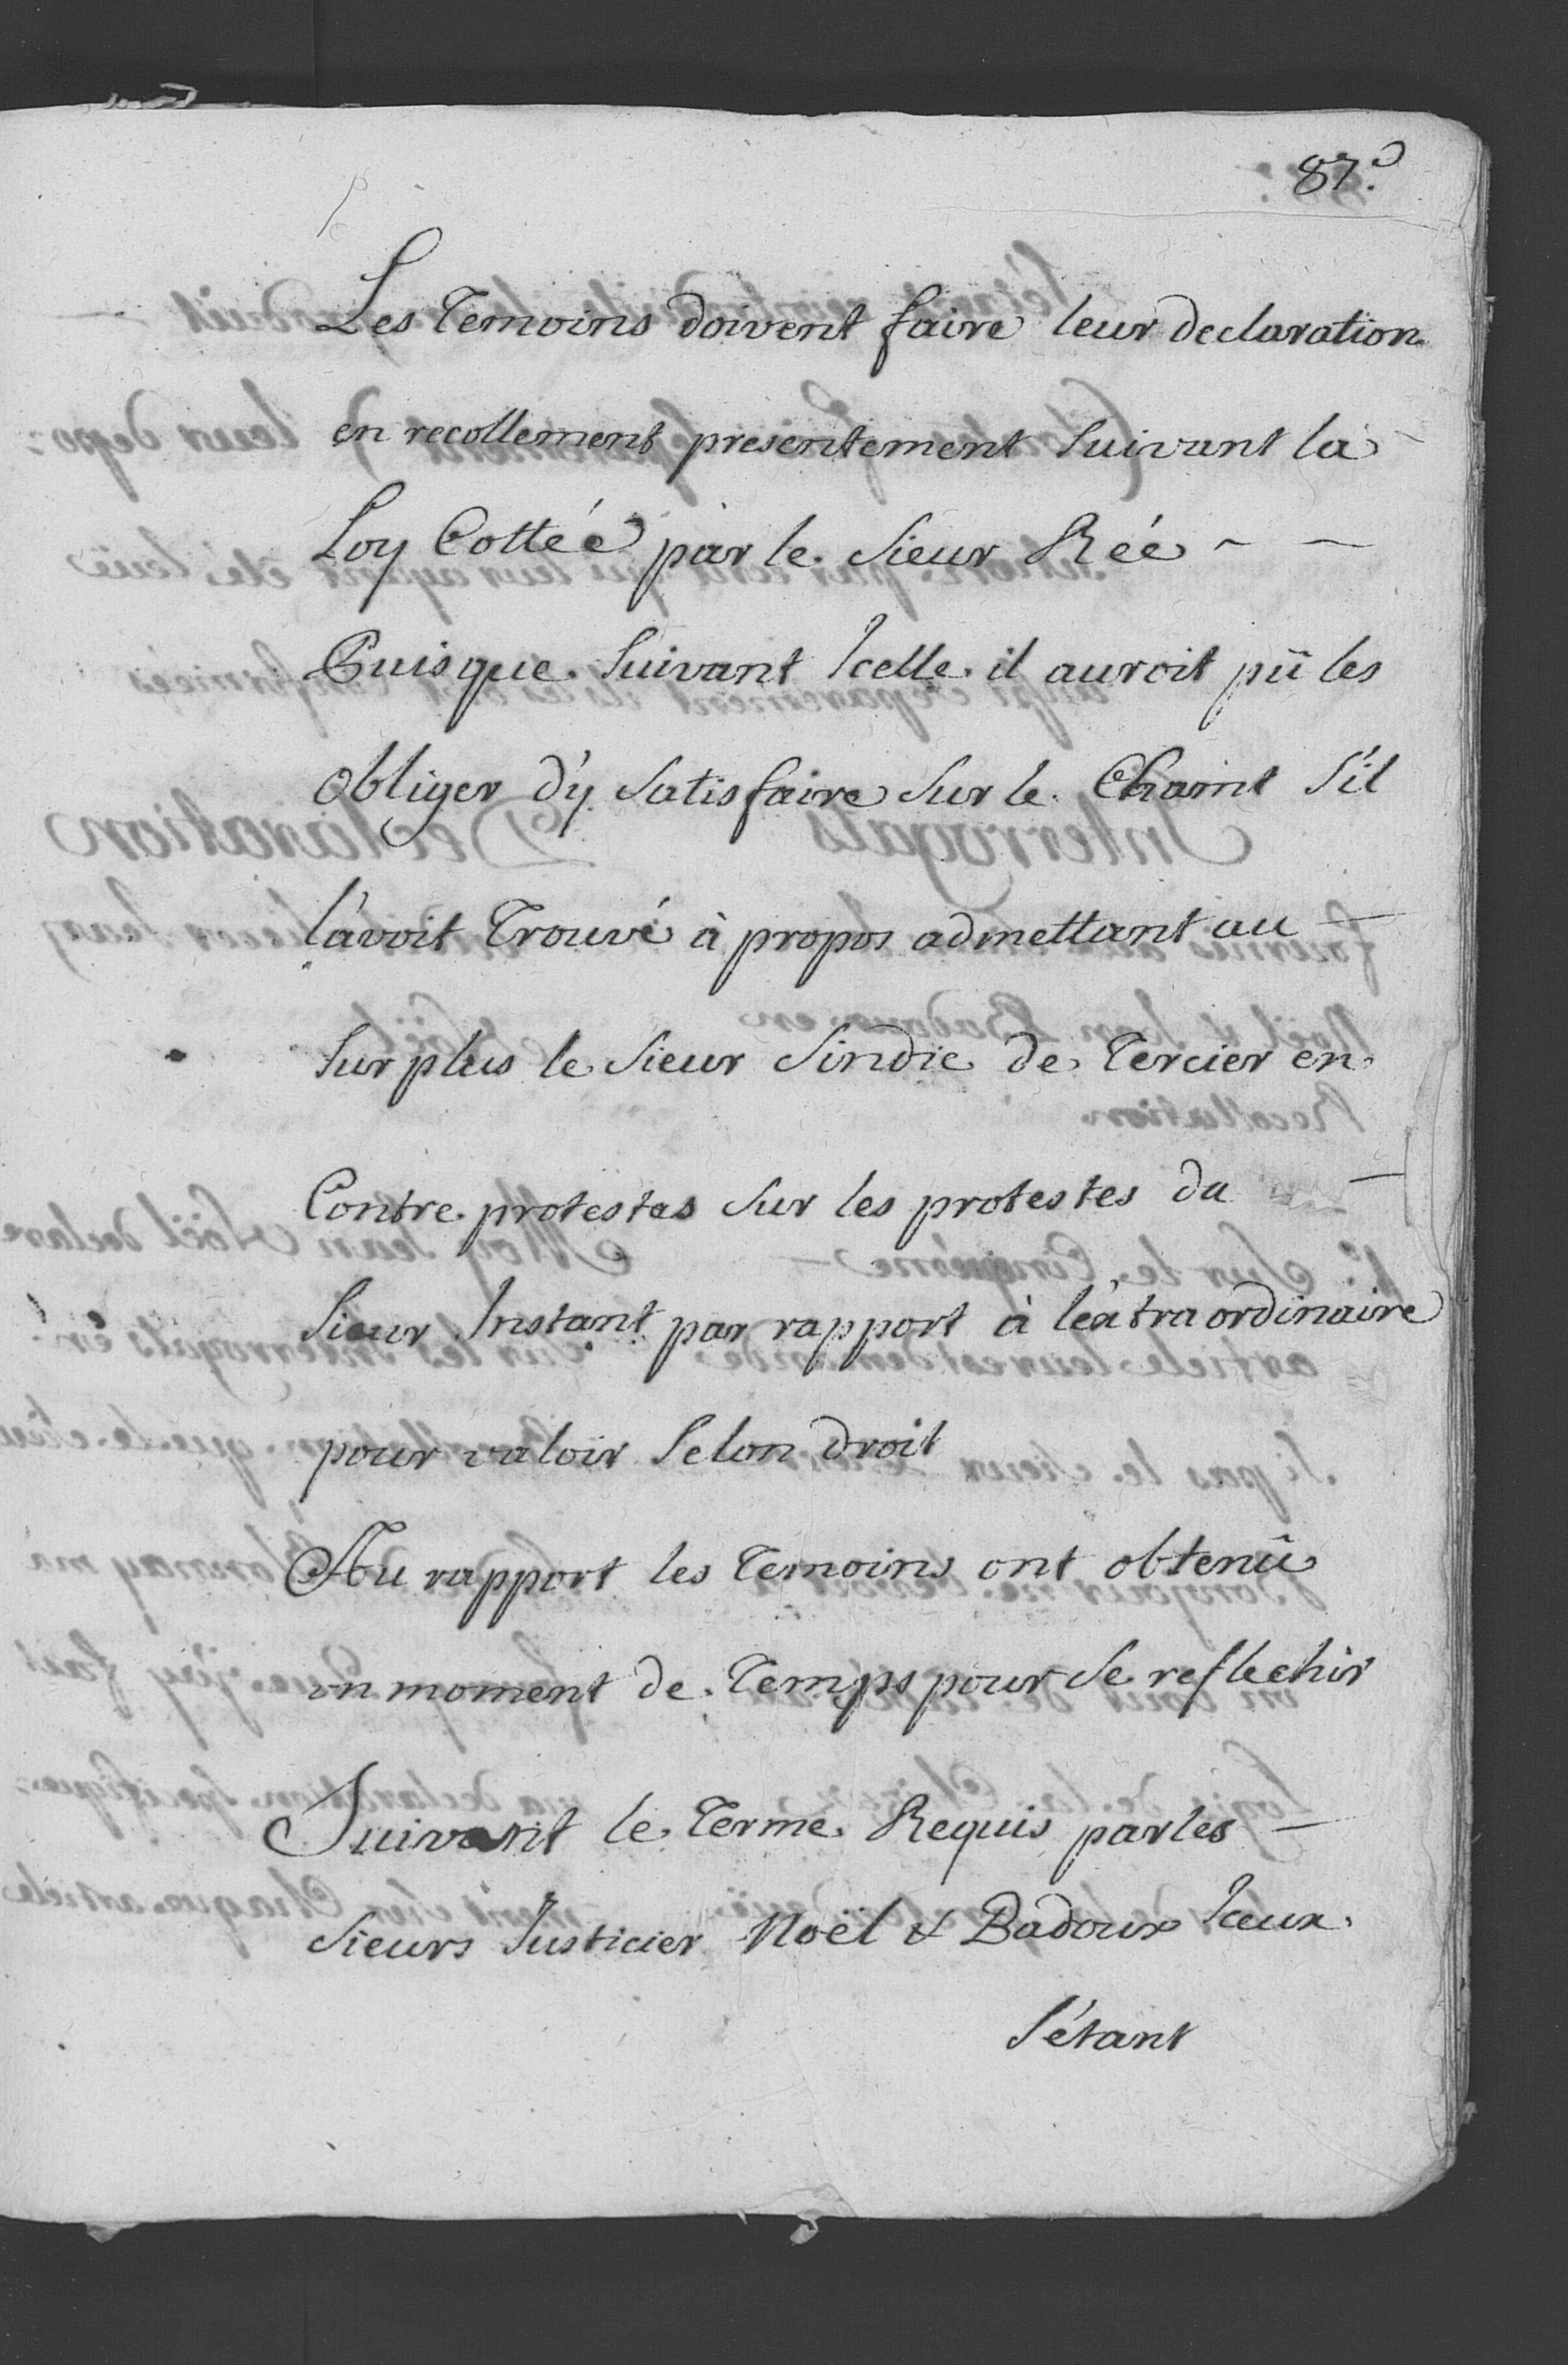 87.
Les Temoins doivent faire leur declaration
en recollement presentement suivant la
Loy Cottéé par le Sieur Réé - -
Puisque suivant Icelle il auroit pû les
obliger d'y satisfaire sur le Chamt s'il
l'avoit Trouvé à propos admettant au —
surplus le Sieur Sindic de Tercier en
Contre protestas sur les protestes du —
Sieur Instant par rapport à l'extraordinaire
pour valoir selon droit
Au rapport les Temoins ont obtenû
un moment de Temps pour se reflechir
Suivant le Terme Requis par les —
Sieurs Justicier Noël & Badoux Iceux
s'étant